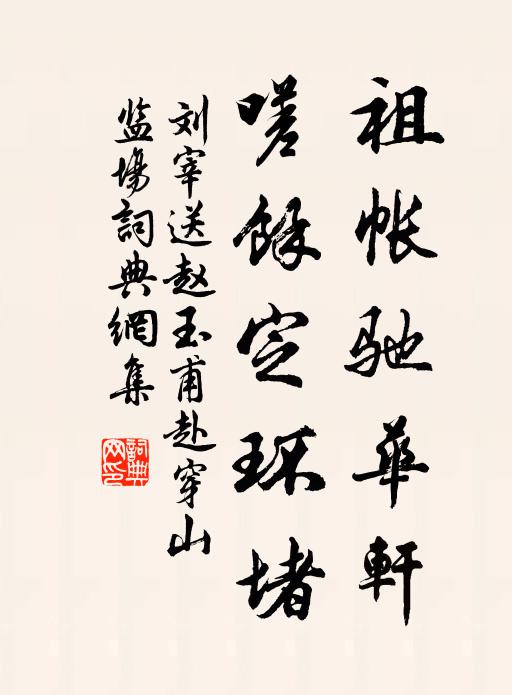 祖帐驰华轩
嗟餘定环堵
刘宰送赵玉甫赴穿山
监场詞典網集
詞典网印